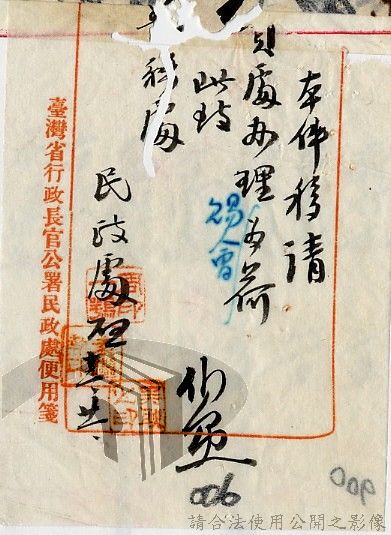 本件移請
貴處办理為荷
賜會
此致
處
民政處啟
臺灣省行政長官公署民政處便用箋
006
請合法使用公開之影像